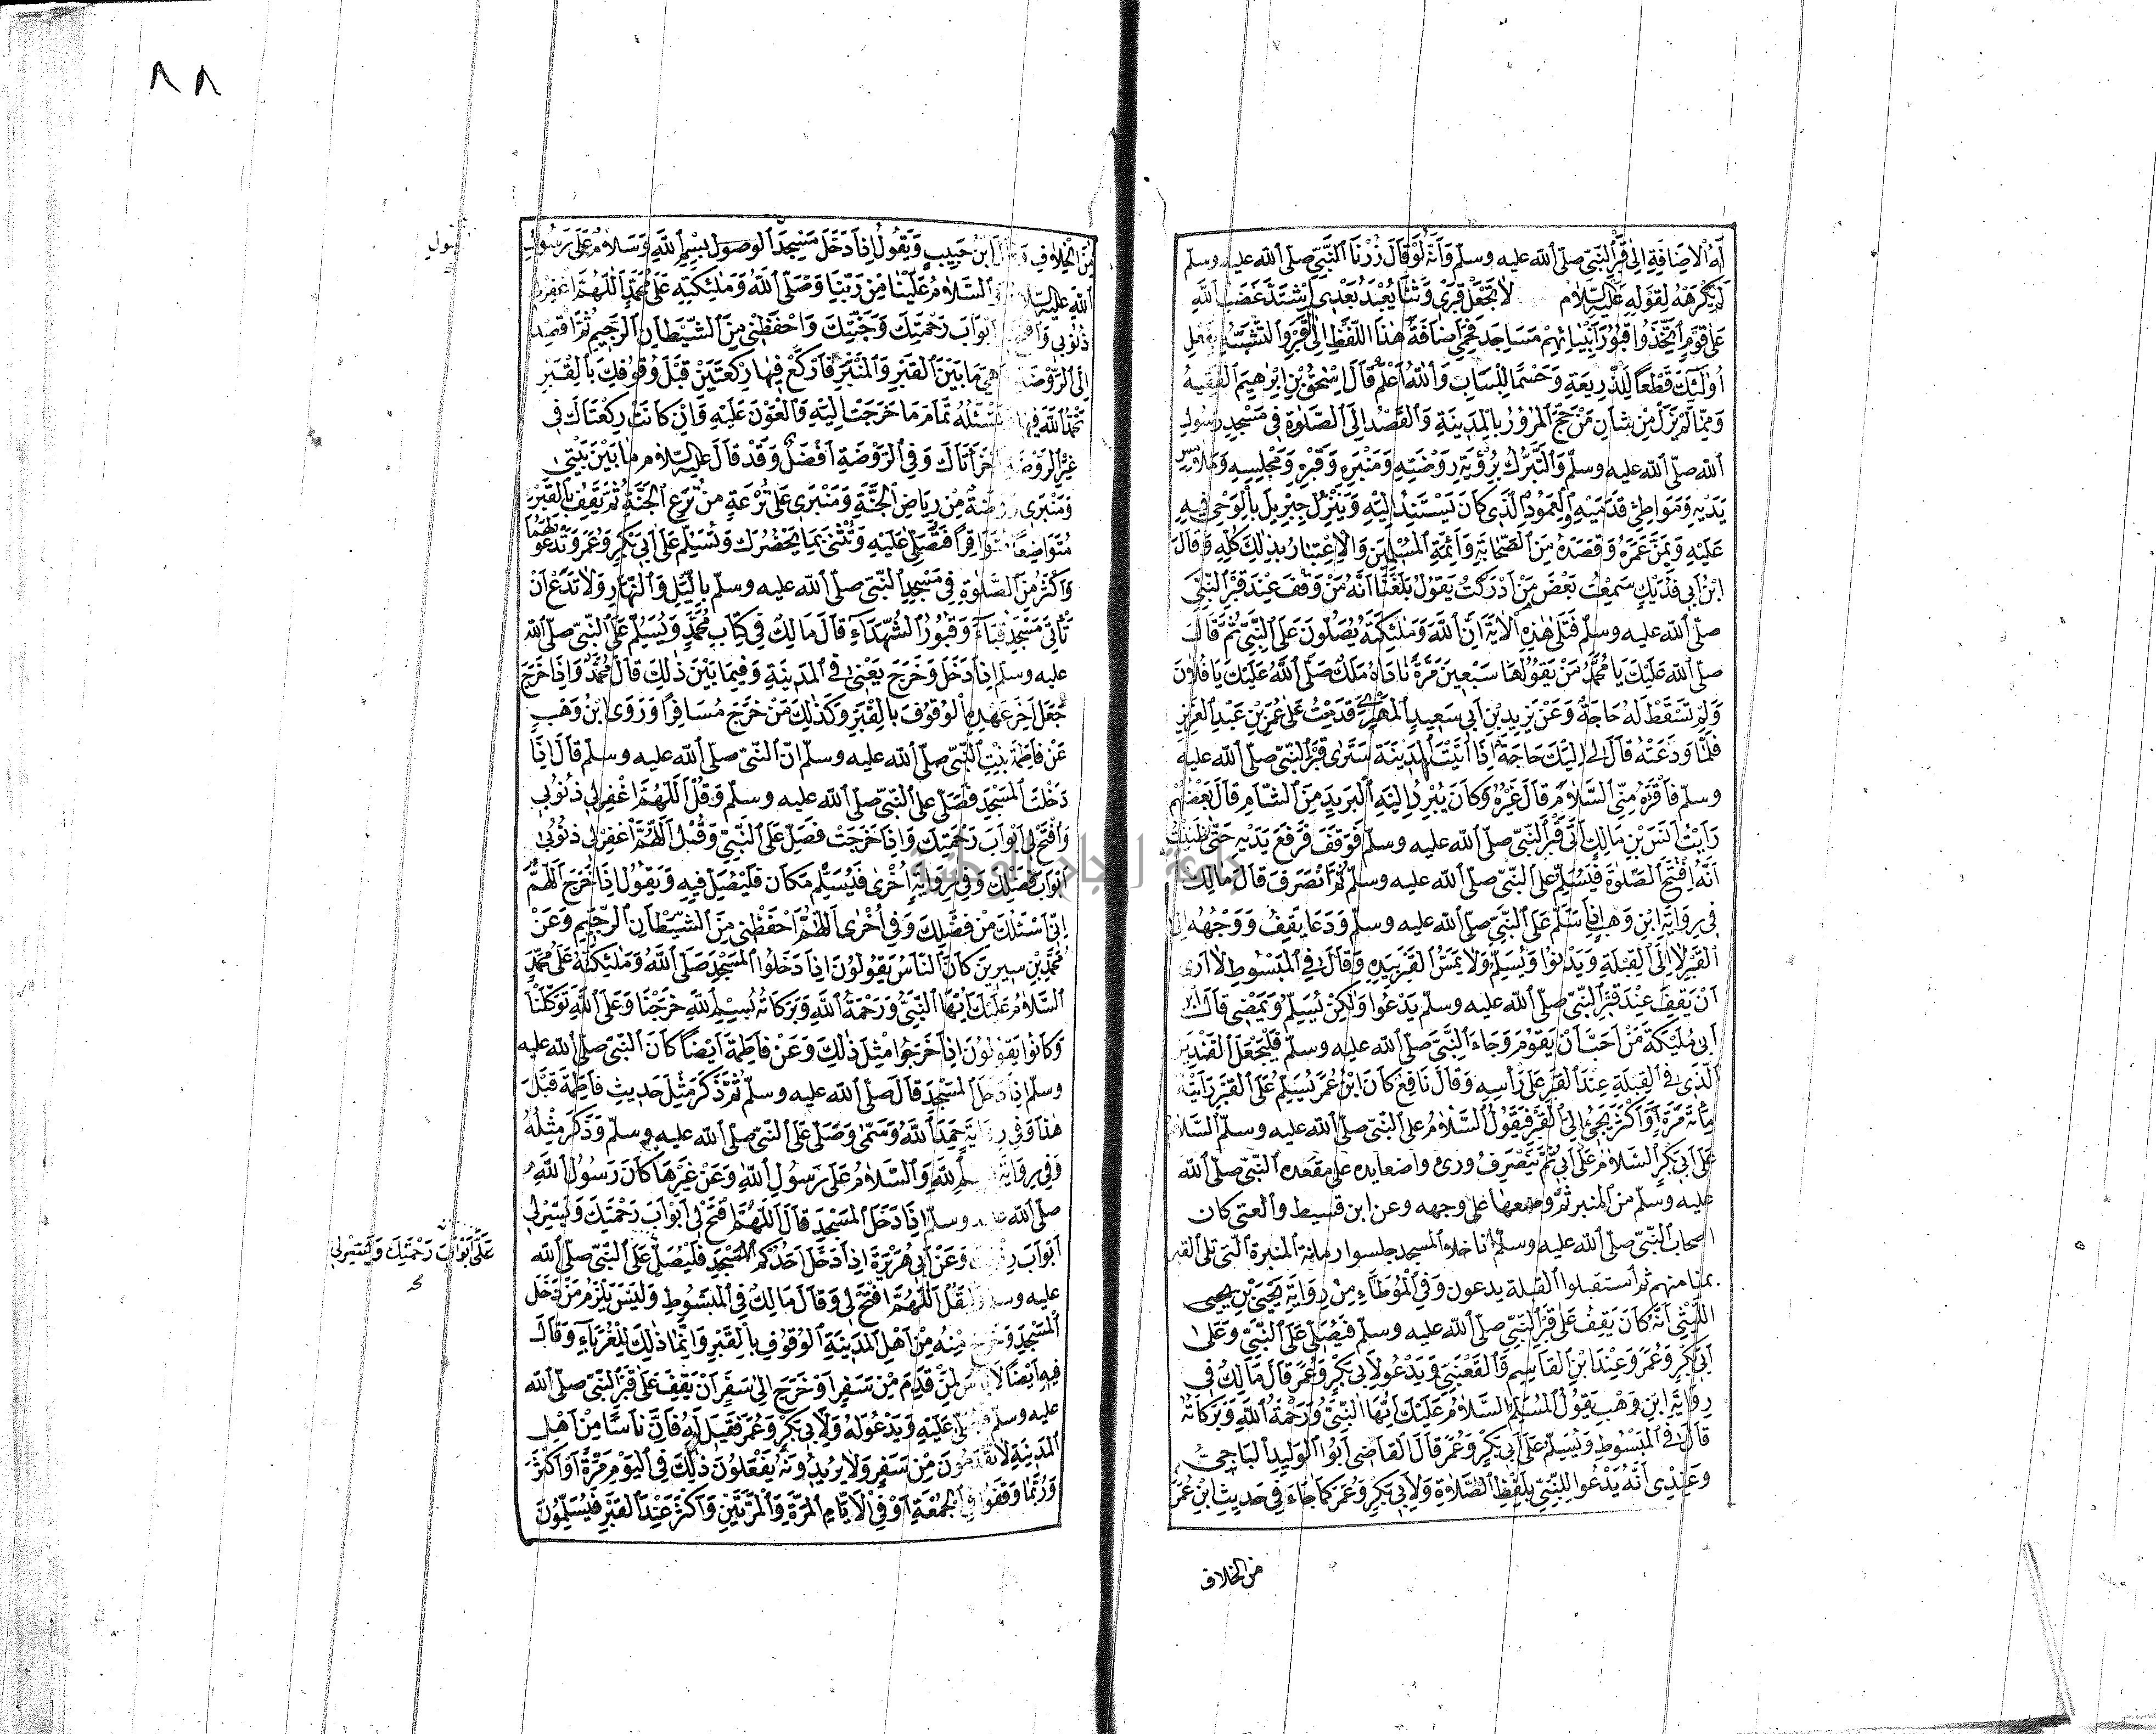 لَهُ الْاِضَافَةِ اِلٰى قَبْرِ النَّبِيِّ صلّى الله عليه وسلّم وَاَنَّهُ لَوْ قَالَ زُرْنَا النَّبِيَّ صلّى الله عليه وسلّم
لَمْ يَكْرَهْهُ لِقَوْلِهِ عَلَيْهِ السَّلَامُ لَا تَجْعَلْ قَبْرِى وَثَنًا يُعْبَدُ بَعْدِى اِشْتَدَّ غَضَبُ اللّٰهِ
عَلٰى قَوْمٍ اتَّخَذُوا قُبُورَ اَنْبِيَائِهِمْ مَسَاجِدَ فَحَمٰى اِضَافَةَ هٰذَا اللَّفْظِ اِلَى الْقَبْرِ وَالتَّشَبُّهِ بِفِعْلِ
اُولٰئِكَ قَطْعًا لِلذَّرِيعَةِ وَحَسْمًا لِلْبَابِ وَاللّٰهُ اَعْلَمُ قَالَ اِسْحٰقُ بْنُ اِبْرٰهِيمَ الْفَقِيهُ
وَمِمَّا لَمْ يَزَلْ مِنْ شَاْنِ مَنْ حَجَّ الْمُرُورُ بِالْمَدِينَةِ وَالْقَصْدُ اِلَى الصَّلٰوةِ فِى مَسْجِدِ رَسُولِ
اللّٰه صلّى الله عليه وسلّم وَالتَّبَرُّكُ بِرُؤْيَةِ رَوْضَتِهِ وَمِنْبَرِهِ وَقَبْرِهِ وَمَجْلِسِهِ وَمَلَامِسِ
يَدَيْهِ وَمَوَاطِئِ قَدَمَيْهِ وَالْعَمُودِ الَّذِى كَانَ يَسْتَنِدُ اِلَيْهِ وَيَنْزِلُ جِبْرِيلُ بِالْوَحْىِ فِيهِ
عَلَيْهِ وَبِمَنْ عَمَرَهُ وَقَصَدَهُ مِنَ الصَّحَابَةِ وَاَئِمَّةِ الْمُسْلِمِينَ وَالْاِعْتِبَارُ بِذٰلِكَ كُلِّهِ وَقَالَ
ابْنُ اَبِى فُدَيْكٍ سَمِعْتُ بَعْضَ مَنْ اَدْرَكْتُ يَقُولُ بَلَغَنَا اَنَّهُ مَنْ وَقَفَ عِنْدَ قَبْرِ النَّبِىِّ
صلّى الله عليه وسلّم فَتَلٰى هٰذِهِ الْاٰيَةَ اِنَّ اللّٰهَ وَمَلٰئِكَتَهُ يُصَلُّونَ عَلَى النَّبِىِّ ثُمَّ قَالَ
صلّى الله عَلَيْكَ يَا مُحَمَّدُ مَنْ يَقُولُهَا سَبْعِينَ مَرَّةً نَادَاهُ مَلَكٌ صَلَّى اللّٰهُ عَلَيْكَ يَا فُلَانُ
وَلَمْ تَسْقُطْ لَهُ حَاجَةٌ وَعَنْ يَزِيدَ بْنِ اَبِى سَعِيدٍ الْمَهْرِىِّ قَدِمْتُ عَلٰى عُمَرَ بْنِ عَبْدِ الْعَزِيزِ
فَلَمَّا وَدَّعْتُهُ قَالَ لِى اِلَيْكَ حَاجَةٌ اِذَا اَتَيْتَ الْمَدِينَةَ سَتَرٰى قَبْرَ النَّبِىِّ صلّى الله عليه
وسلّم فَاَقْرِهِ مِنِّى السَّلَامَ قَالَ غَيْرُهُ وَكَانَ يُبْرِدُ اِلَيْهِ الْبَرِيدَ مِنَ الشَّامِ قَالَ بَعْضُهُمْ
رَاَيْتُ اَنَسَ بْنَ مَالِكٍ اَتٰى قَبْرَ النَّبِىِّ صلّى الله عليه وسلّم فَوَقَفَ فَرَفَعَ يَدَيْهِ حَتّٰى ظَنَنْتُ
اَنَّهُ افْتَتَحَ الصَّلٰوةَ فَسَلَّمَ عَلَى النَّبِىِّ صلّى الله عليه وسلّم ثُمَّ انْصَرَفَ قَالَ مَالِكٌ
فِى رِوَايَةِ ابْنِ وَهْبٍ اِذَا سَلَّمَ عَلَى النَّبِىِّ صلّى الله عليه وسلّم وَدَعَا يَقِفُ وَوَجْهُهُ اِلَى
الْقَبْرِ لَا اِلَى الْقِبْلَةِ وَيَدْنُوا وَيُسَلِّمُ وَلَا يَمَسُّ الْقَبْرَ بِيَدِهِ وَقَالَ فِى الْمَبْسُوطِ لَا اَرٰى
اَنْ يَقِفَ عِنْدَ قَبْرِ النَّبِىِّ صلّى الله عليه وسلّم يَدْعُوا وَلٰكِنْ يُسَلِّمُ وَيَمْضِى قَالَ ابْنُ
اَبِى مُلَيْكَةَ مَنْ اَحَبَّ اَنْ يَقُومَ وِجَاهَ النَّبِىِّ صلّى الله عليه وسلّم فَلْيَجْعَلِ الْقِنْدِيلَ
الَّذِى فِى الْقِبْلَةِ عِنْدَ الْقَبْرِ عَلٰى رَاْسِهِ وَقَالَ نَافِعٌ كَانَ ابْنُ عُمَرَ يُسَلِّمُ عَلَى الْقَبْرِ رَاَيْتُهُ
مِائَةَ مَرَّةٍ اَوْ اَكْثَرَ يَجِىءُ اِلَى الْقَبْرِ فَيَقُولُ السَّلَامُ عَلَى النَّبِىِّ صلّى الله عليه وسلّم السَّلَامُ
عَلٰى اَبِى بَكْرٍ السَّلَامُ عَلٰى اَبِى ثُمَّ يَنْصَرِفُ ورئ واضعا يده على مقعده النّبىّ صلّى الله
عليه وسلّم من المنبر ثمّ وضعها على وجهه وعن ابن قسيط والعتبى كان
اصحاب النّبىّ صلّى الله عليه وسلّم اذا خلا المسجد جلسوا رمانة المنبرة الّتى تلى القبر
بميامنهم ثم استقبلوا القبلة يدعون وَفِى الْمُوَطَّاءِ مِنْ رِوَايَةِ يَحْيَى بْنِ يحيى
اللَّيْثِى اَنَّهُ كَانَ يَقِفُ عَلٰى قَبْرِ النَّبِىِّ صلّى الله عليه وسلّم فَيُصَلِّى عَلَى النَّبِىِّ وَعَلٰى
اَبِى بَكْرٍ وَعُمَرَ وَعِنْدَ ابْنِ الْقَاسِمِ وَالْقَعْنَبِىِّ وَيَدْعُو لِاَبِى بَكْرٍ وَعُمَرَ قَالَ مَالِكٌ فِى
رِوَايَةِ ابْنِ وَهْبٍ يَقُولُ الْمُسَلِّمُ السَّلَامُ عَلَيْكَ اَيُّهَا النَّبِىُّ وَرَحْمَةُ اللّٰهِ وَبَرَكَاتُهُ
قَالَ فِى الْمَبْسُوطِ وَيُسَلِّمُ عَلٰى اَبِى بَكْرٍ وَعُمَرَ قَالَ الْقَاضِى اَبُوا الْوَلِيدِ الْبَاجِىُّ
وَعِنْدِى اَنَّهُ يَدْعُوا لِلنَّبِىِّ بِلَفْظِ الصَّلَاةِ وَلِاَبِى بَكْرٍ وَعُمَرَ كَمَا جَاءَ فِى حَدِيثِ ابْنِ عُمَرَ
من الخلاف
٨٨
مِنَ الْخِلَافِ ابْنُ حَبِيبٍ وَيَقُولُ اِذَا دَخَلَ مَسْجِدَ الوصول بِسْمِ اللّٰهِ وَسَلَامٌ عَلٰى رَسُولِ
سول
اللّٰهِ عَلَيْهِ السَّلَامُ السَّلَامُ عَلَيْنَا مِنْ رَبِّنَا وَصَلَّى اللّٰهُ وَمَلٰئِكَتُهُ عَلٰى مُحَمَّدٍ اَللّٰهُمَّ اغْفِرْ لِى
ذُنُوبِى اَبْوَابَ رَحْمَتِكَ وَجَنَّتِكَ وَاحْفَظْنِى مِنَ الشَّيْطَانِ الرَّجِيمِ ثُمَّ اقْصِدْ
اِلَى الرَّوْضَةِ وَهِىَ مَا بَيْنَ الْقَبْرِ وَالْمِنْبَرِ فَارْكَعْ فِيهَا رَكْعَتَيْنِ قَبْلَ وُقُوفِكَ بِالْقَبْرِ
تَحْمَدُ اللّٰهَ فِيهَا وَتَسْئَلُهُ تَمَامَ مَا خَرَجْتَ اِلَيْهِ وَالْعَوْنَ عَلَيْهِ وَاِنْ كَانَتْ رَكْعَتَاكَ فِى
غَيْرِ الرَّوْضَةِ اَجْزَاَتَاكَ وَفِى الرَّوْضَةِ اَفْضَلُ وَقَدْ قَالَ عَلَيْهِ السَّلَامُ مَا بَيْنَ بَيْتِى
وَمِنْبَرِى رَوْضَةٌ مِنْ رِيَاضِ الْجَنَّةِ وَمِنْبَرِى عَلٰى تُرْعَةٍ مِنْ تُرَعِ الْجَنَّةِ ثُمَّ تَقِفُ بِالْقَبْرِ
مُتَوَاضِعًا مُتَوَاقِرًا فَتُصَلِّى عَلَيْهِ وَتُثْنِى بِمَا يَحْضُرُكَ وَتُسَلِّمُ عَلٰى اَبِى بَكْرٍ وَعُمَرَ وَتَدْعُو لَهُمَا
وَاَكْثِرْ مِنَ الصَّلٰوةِ فِى مَسْجِدِ النَّبِىِّ صلّى الله عليه وسلّم بِاللَّيْلِ وَالنَّهَارِ وَلَا تَدَعْ اَنْ
تَاْتِىَ مَسْجِدَ قُبَاءَ وَقُبُورَ الشُّهَدَاءِ قَالَ مَالِكٌ فِى كِتَابِ مُحَمَّدٍ وَيُسَلِّمُ عَلَى النَّبِىِّ صلّى الله
عليه وسلّم اِذَا دَخَلَ وَخَرَجَ يَعْنِى فِى الْمَدِينَةِ وَفِيمَا بَيْنَ ذٰلِكَ قَالَ مُحَمَّدٌ وَاِذَا خَرَجَ
جَعَلَ اٰخِرَ عَهْدِهِ الْوُقُوفَ بِالْقَبْرِ وَكَذٰلِكَ مَنْ خَرَجَ مُسَافِرًا وَرَوَى بْنُ وَهْبٍ
عَنْ فَاطِمَةَ بِنْتِ النَّبِىِّ صلّى الله عليه وسلّم اَنَّ النَّبِىَّ صلّى الله عليه وسلّم قَالَ اِذَا
دَخَلْتَ الْمَسْجِدَ فَصَلِّ عَلَى النَّبِىِّ صلّى الله عليه وسلّم وَقُلْ اَللّٰهُمَّ اغْفِرْ لِى ذُنُوبِى
وَافْتَحْ لِى اَبْوَابَ رَحْمَتِكَ وَاِذَا خَرَجْتَ فَصَلِّ عَلَى النَّبِىِّ وَقُلْ اَللّٰهُمَّ اغْفِرْ لِى ذُنُوبِى
اَبْوَابَ فَضْلِكَ وَفِى رِوَايَةٍ اُخْرٰى فَلْيُسَلِّمْ مَكَانَ فَلْيُصَلِّ فِيهِ وَيَقُولُ اِذَا خَرَجَ اَللّٰهُمَّ
اِنِّى اَسْئَلُكَ مِنْ فَضْلِكَ وَفِى اُخْرٰى اَللّٰهُمَّ احْفَظْنِى مِنَ الشَّيْطَانِ الرَّجِيمِ وَعَنْ
مُحَمَّدِ بْنِ سِيرِينَ كَانَ النَّاسُ يَقُولُونَ اِذَا دَخَلُوا الْمَسْجِدَ صَلَّى اللّٰهُ وَمَلٰئِكَتُهُ عَلٰى مُحَمَّدٍ
السَّلَامُ عَلَيْكَ اَيُّهَا النَّبِىُّ وَرَحْمَةُ اللّٰهِ وَبَرَكَاتُهُ بِسْمِ اللّٰهِ خَرَجْنَا وَعَلَى اللّٰهِ تَوَكَّلْنَا
وَكَانُوا يَقُولُونَ اِذَا خَرَجُوا مِثْلَ ذٰلِكَ وَعَنْ فَاطِمَةَ اَيْضًا كَانَ النَّبِىُّ صلّى الله عليه
وسلّم اِذَا دَخَلَ الْمَسْجِدَ قَالَ صَلَّى الله عليه وسلّم ثُمَّ ذَكَرَ مِثْلَ حَدِيثِ فَاطِمَةَ قَبْلَ
هٰذَا وَفِى رِوَايَةٍ حَمِدَ اللّٰهَ وَسَمّٰى وَصَلّٰى عَلَى النَّبِىِّ صلّى الله عليه وسلّم وَذَكَرَ مِثْلَهُ
وَفِى رِوَايَةٍ بِسْمِ اللّٰهِ وَالسَّلَامُ عَلٰى رَسُولِ اللّٰهِ وَعَنْ غَيْرِهَا كَانَ رَسُولُ اللّٰهِ
صلّى الله عليه وسلّم اِذَا دَخَلَ الْمَسْجِدَ قَالَ اَللّٰهُمَّ افْتَحْ لِى اَبْوَابَ رَحْمَتِكَ وَيَسِّرْ لِى
عَلَىَّ اَبْوَابَ رَحْمَتِكَ وَيَسِّرْ لِى
اَبْوَابَ رِزْقِكَ وَعَنْ اَبِى هُرَيْرَةَ اِذَا دَخَلَ اَحَدُكُمُ الْمَسْجِدَ فَلْيُصَلِّ عَلَى النَّبِىِّ صلّى الله
عليه وسلّم وَلْيَقُلْ اَللّٰهُمَّ افْتَحْ لِى وَقَالَ مَالِكٌ فِى الْمَبْسُوطِ وَلَيْسَ يَلْزَمُ مَنْ دَخَلَ
الْمَسْجِدَ وَخَرَجَ مِنْهُ مِنْ اَهْلِ الْمَدِينَةِ الْوُقُوفُ بِالْقَبْرِ وَاِنَّمَا ذٰلِكَ لِلْغُرَبَاءِ وَقَالَ
فِيهِ اَيْضًا لَا بَاْسَ لِمَنْ قَدِمَ مِنْ سَفَرٍ اَوْ خَرَجَ اِلٰى سَفَرٍ اَنْ يَقِفَ عَلٰى قَبْرِ النَّبِىِّ صلّى الله
عليه وسلّم فَيُصَلِّى عَلَيْهِ وَيَدْعُو لَهُ وَلِاَبِى بَكْرٍ وَعُمَرَ فَقِيلَ لَهُ فَاِنَّ نَاسًا مِنْ اَهْلِ
الْمَدِينَةِ لَا يَقْدَمُونَ مِنْ سَفَرٍ وَلَا يُرِيدُونَهُ يَفْعَلُونَ ذٰلِكَ فِى الْيَوْمِ مَرَّةً اَوْ اَكْثَرَ
وَرُبَّمَا وَقَفُوا فِى الْجُمُعَةِ اَوْ فِى الْاَيَّامِ الْمَرَّةَ وَالْمَرَّتَيْنِ وَاَكْثَرَ عِنْدَ الْقَبْرِ فَيُسَلِّمُونَ